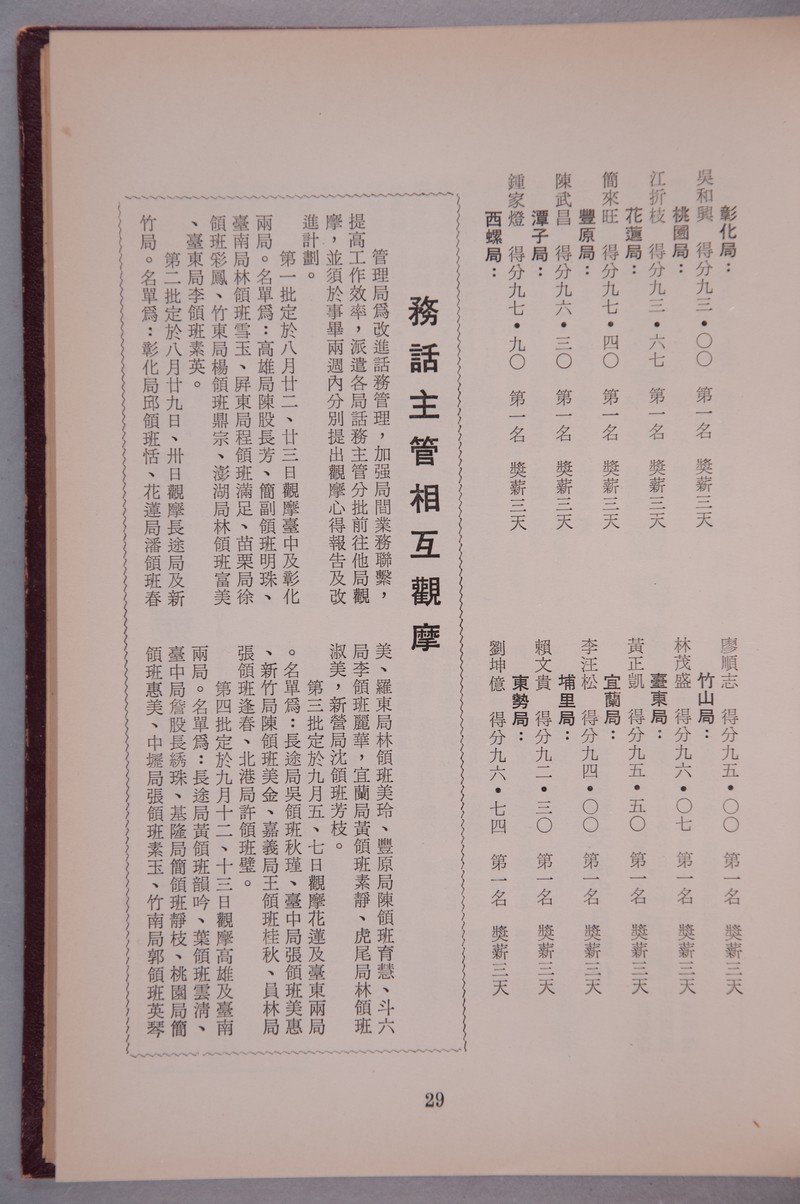 彰化局：
吳和興　得分九三•〇〇　第一名　獎薪三天
桃園局：
江折枝　得分九三•六七　第一名　獎薪三天
花蓮局：
簡來旺　得分九七•四〇　第一名　獎薪三天
豐原局：
陳武昌　得分九六•三〇　第一名　獎薪三天
潭子局：
鍾家燈　得分九七•九〇　第一名　獎薪三天
西螺局：
廖順志　得分九五•〇〇　第一名　獎薪三天
竹山局：
林茂盛　得分九六•〇七　第一名　獎薪三天
臺東局：
黃正凱　得分九五•五〇　第一名　獎薪三天
宜蘭局：
李汪松　得分九四•〇〇　第一名　獎薪三天
埔里局：
賴文貴　得分九二•三〇　第一名　獎薪三天
東勢局：
劉坤億　得分九六•七四　第一名　獎薪三天
務話主管相互觀摩
管理局爲改進話務管理，加强局間業務聯繫，
提高工作效率，派遣各局話務主管分批前往他局觀
摩，並須於事畢兩週內分別提出觀摩心得報告及改
進計劃。
第一批定於八月廿二、廿三日觀摩臺中及彰化
兩局。名單爲：高雄局陳股長芳、簡副領班明珠、
臺南局林領班雪玉、屏東局程領班滿足、苗栗局徐
領班彩鳳、竹東局楊領班鼎宗、澎湖局林領班富美
、臺東局李領班素英。
第二批定於八月廿九日、卅日觀摩長途局及新
竹局。名單爲：彰化局邱領班恬、花蓮局潘領班春
美、羅東局林領班美玲、豐原局陳領班育慧、斗六
局李領班麗華，宜蘭局黃領班素靜、虎尾局林領班
淑美，新營局沈領班芳枝。
第三批定於九月五、七日觀摩花蓮及臺東兩局
。名單爲：長途局吳領班秋瑾、臺中局張領班美惠
、新竹局陳領班美金、嘉義局王領班桂秋、員林局
張領班逢春、北港局許領班璧。
第四批定於九月十二、十三日觀摩高雄及臺南
兩局。名單爲：長途局黃領班韻吟、葉領班雲淸、
臺中局詹股長綉珠、基隆局簡領班靜枝、桃園局簡
領班惠美、中壢局張領班素玉、竹南局郭領班英琴
29